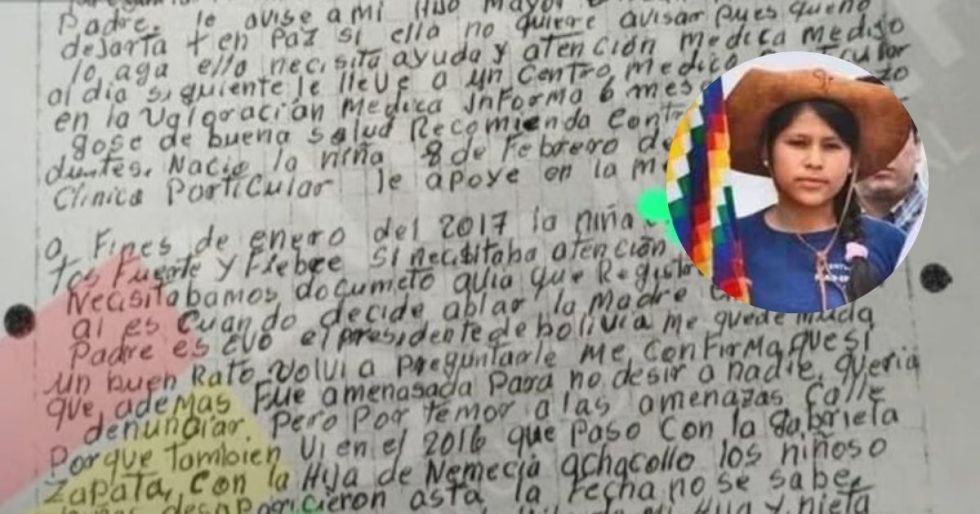 Padre. le avise a mi Hijo Mayor
dejarta + en Paz si ella no quiere avisar pues queño
lo aga ella necisita ayuda y atención medica medijo
al dia siguiente le lleve a un Centro medico
en la Valoracian Medica informa 6 mes
gose de buena salud Recomienda Cont
duntes. Nacio la niña 8 de Febrero de
Clinica Particular le apoye en la m
a Fines de enero del 2017 la niña
tos Fuerte y Fiebre Si necisitaba atención
Necisitabamos documeto aulia que Regist
ai es Cuando decide ablar la Madre
Padre es evo el presidente de bolivia me quede muda
un buen Rato volvi a preguntarle me confirma que si
que, ademas Fue amenasada Para no desir a nadie, queria
denunciar. Pero Por temor a las amenazas Calle
Porque Tambien Vi en el 2016 que Paso Con la Gabriela
Zapata, Con la Hija de Nemecia achacollo los niñoso
desaparicieron asta la Fecha no se sabe
Hija y nieta